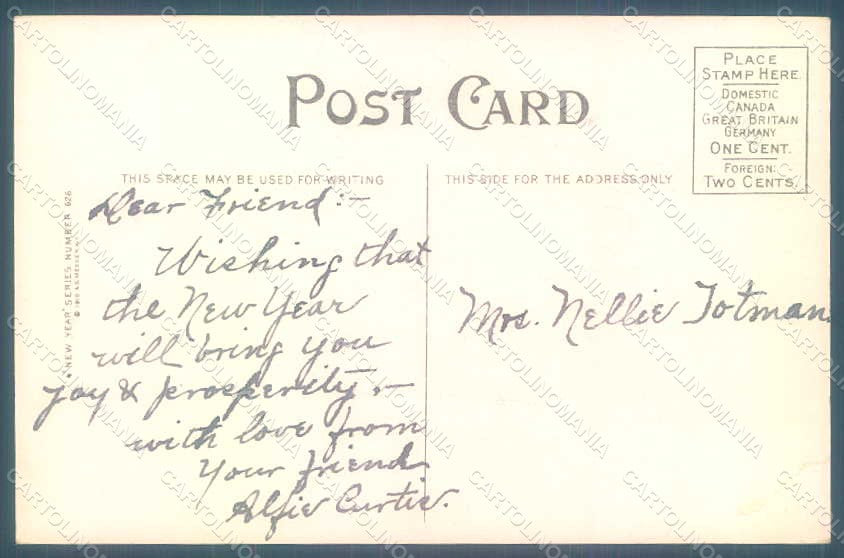 POST CARD
PLACE
STAMP HERE
DOMESTIC
CANADA
GREAT BRITAIN
GERMANY
ONE CENT.
FOREIGN:
TWO CENTS.
THIS SPACE MAY BE USED FOR WRITING
THIS SIDE FOR THE ADDRESS ONLY
"NEW YEAR" SERIES NUMBER 626
Dear Friend:-
Wishing that
the New Year
will bring you
joy & prosperity,-
with love from
Your friend
Alfie Curtis.
Mrs. Nellie Totman.
CARTOLINOMANIA